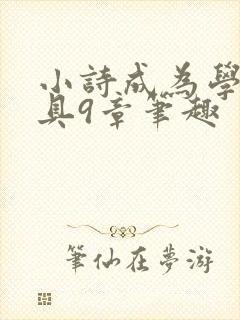 小詩成為學
具9章筆趣
筆仙在夢游